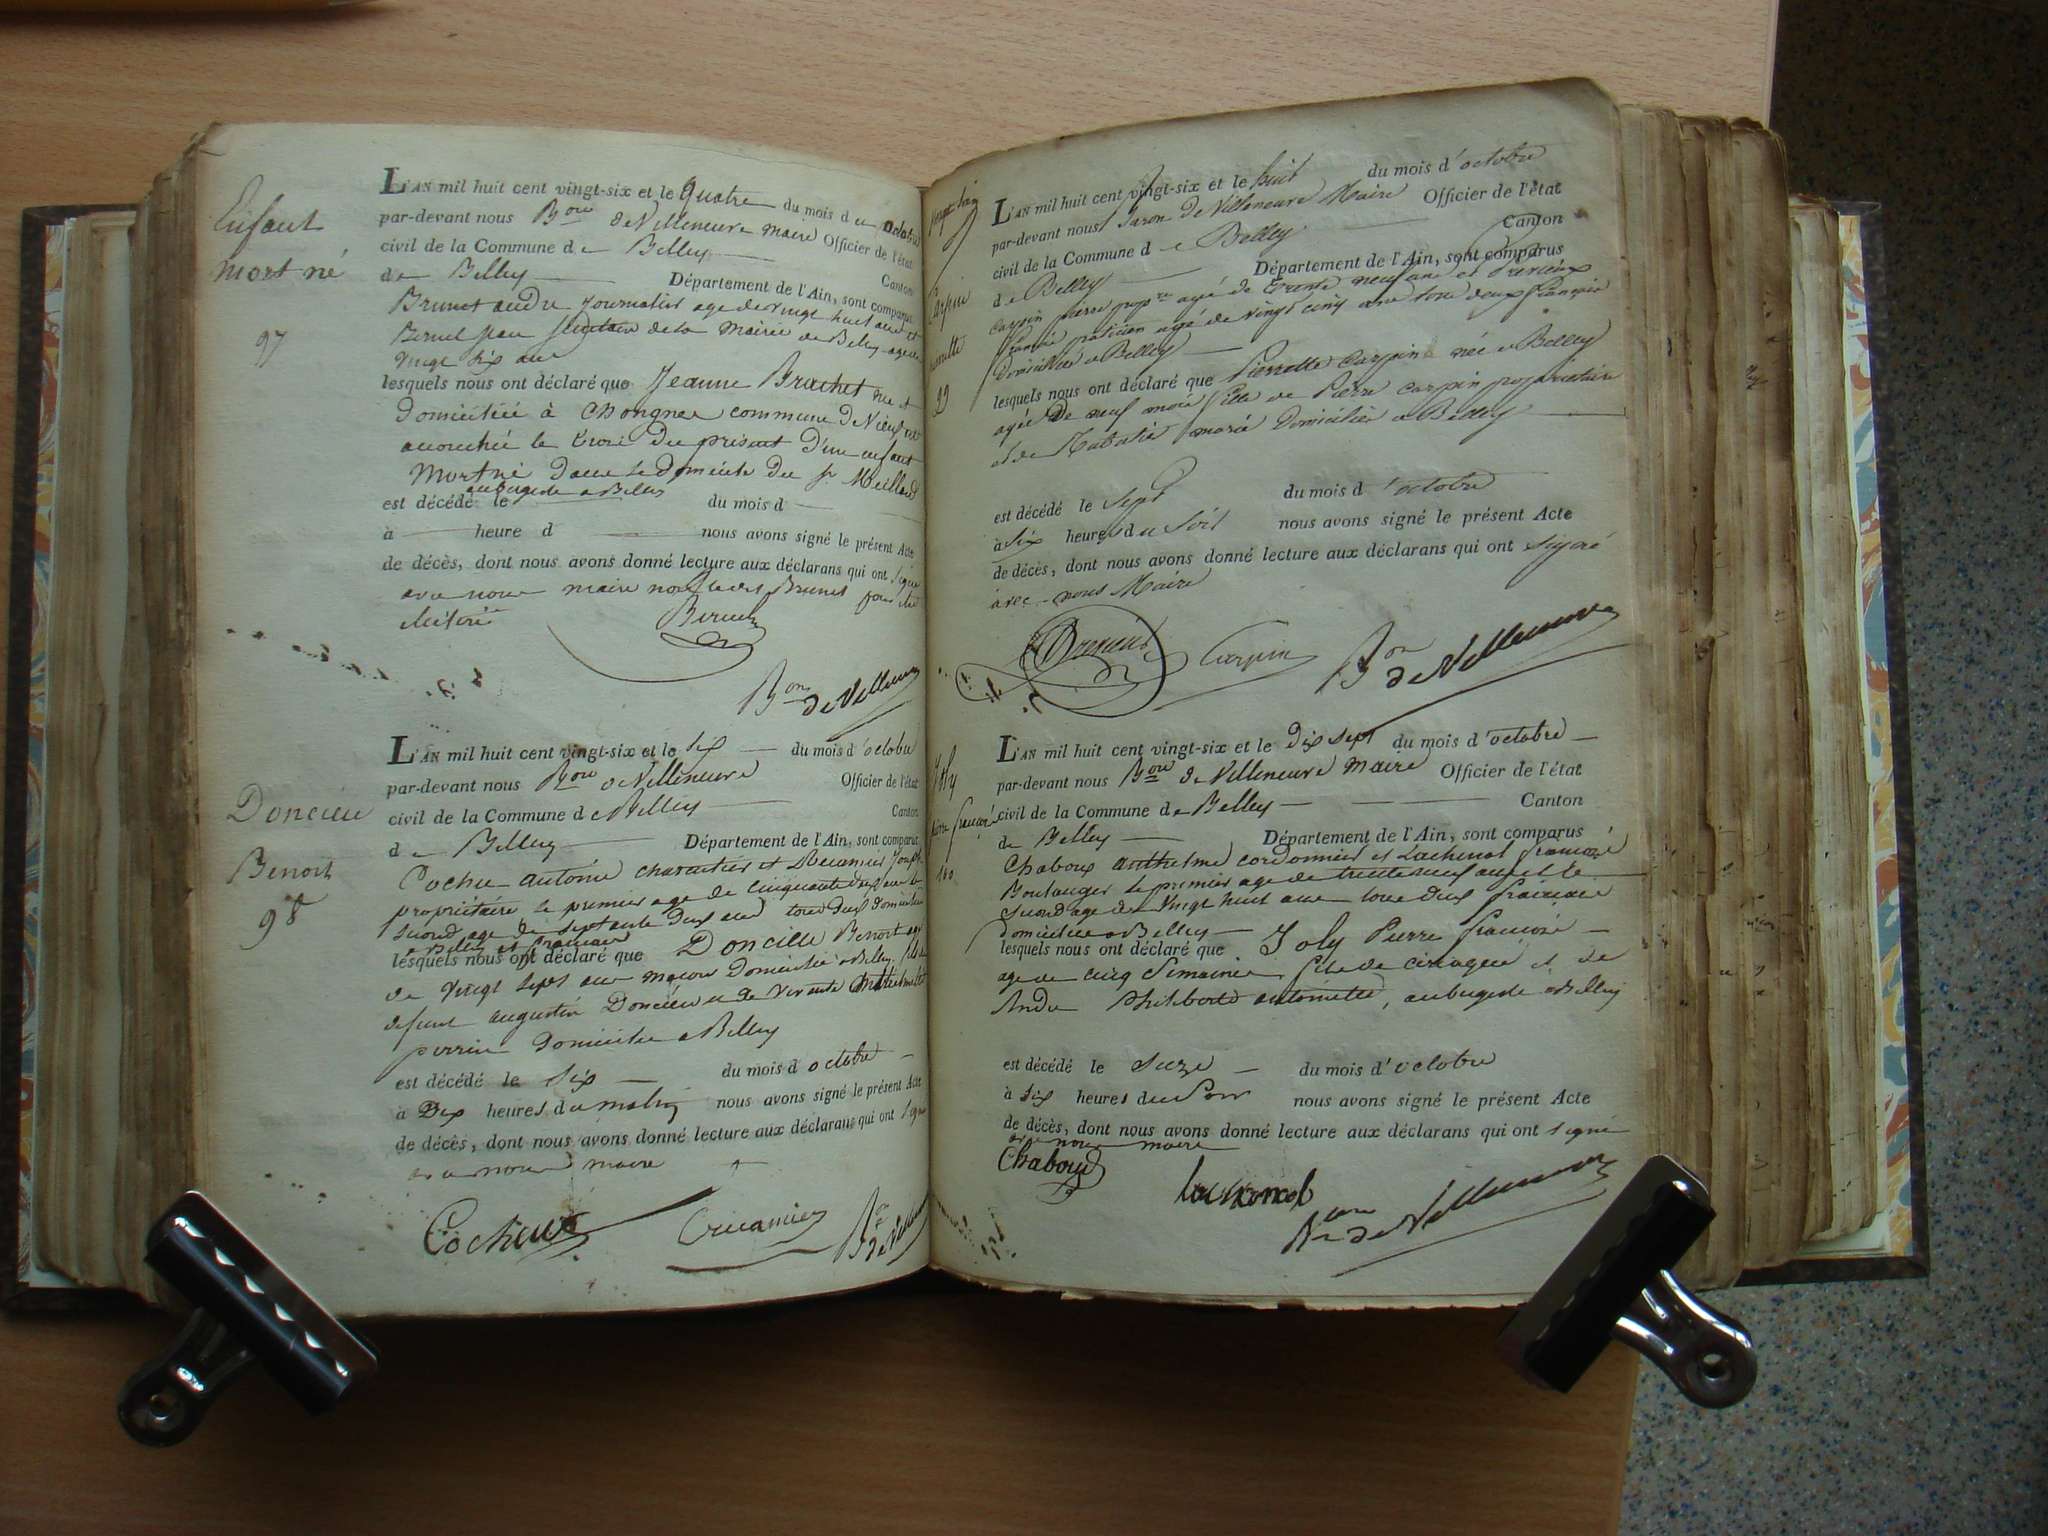 Enfant
mort né
97
L'AN mil huit cent vingt-six et le quatre du mois d octobre
par-devant nous Bon de Villeneuve maire Officier de l'état
civil de la Commune de Belley Canton
de Belley Département de l'Ain, sont comparus
Brunet andré Journalier age de vingt huit ans et
secretaire de la Mairie de Belley age de
vingt six ans
lesquels nous ont déclaré que Jeanne Brachet née et
domiciliée à commune de
accouchée le trois du présent d'un enfant
mort né dans le domicile du sr
aubergiste a Belley
est décédé le du mois d
à heure d nous avons signé le présent Acte
de décès, dont nous avons donné lecture aux déclarans qui ont signé
avec nous maire non Brunet pour être
illitéré
Bon de Villeneuve
Doncieu
Benoit
98
L'AN mil huit cent vingt-six et le six du mois d'octobre
par-devant nous Bon de Villeneuve Officier de l'état
civil de la Commune de Belley Canton
de Belley Département de l'Ain, sont comparus
antoine charcutier et Recamier Joseph
propriétaire le premier age de cinquante deux ans le
second age de septante deux ans tous deux domiciliés
a Belley et français
lesquels nous ont déclaré que Doncieu Benoit age
de vingt sept ans maçon domicilié a Belley fils de
defunt augustin Doncieu et de vivante
perrin domiciliée a Belley
est décédé le six du mois d octobre
à Dix heures du matin nous avons signé le présent Acte
de décès, dont nous avons donné lecture aux déclarans qui ont signé
avec nous maire
Recamier Bon de Villeneuve
Carpin
99
L'AN mil huit cent vingt-six et le huit du mois d'octobre
par-devant nous Baron de Villeneuve Maire Officier de l'état
civil de la Commune de Belley Canton
de Belley Département de l'Ain, sont comparus
Carpin pierre propre agé de trente neuf ans et
praticien agé de vingt cinq ans tous deux français
domiciliés a Belley
lesquels nous ont déclaré que Pierrette Carpin née a Belley
agée de neuf mois fille de Pierre Carpin propriétaire
et de mariés domiciliés a Belley
est décédé le sept du mois d'octobre
à six heures du soir nous avons signé le présent Acte
de décès, dont nous avons donné lecture aux déclarans qui ont signé
avec nous Maire
Carpin Bon de Villeneuve
Joly
pierre françois
100
L'AN mil huit cent vingt-six et le dix sept du mois d'octobre
par-devant nous Bon de Villeneuve maire Officier de l'état
civil de la Commune de Belley Canton
de Belley Département de l'Ain, sont comparus
Chaboux anthelme cordonnier et Lachenal françois
Boulanger le premier age de trente neuf ans et le
second age de vingt huit ans tous deux français
domiciliés a Belley
lesquels nous ont déclaré que Joly Pierre françois
age de cinq semaines fils de et de
Philiberte antoinette, aubergiste a Belley
est décédé le seize du mois d'octobre
à six heures du soir nous avons signé le présent Acte
de décès, dont nous avons donné lecture aux déclarans qui ont signé
avec nous maire
Chaboux
Lachenal
Bon de Villeneuve